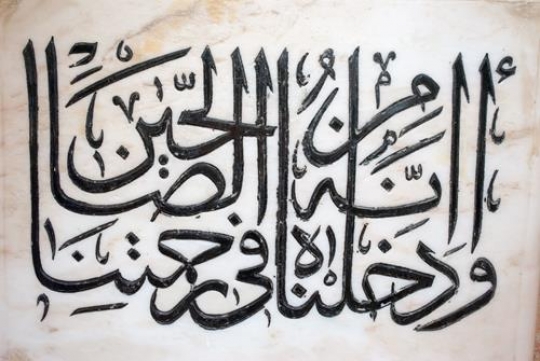 وَأَدْخَلْنَاهُ فِي رَحْمَتِنَا
إِنَّهُ مِنَ الصَّالِحِينَ